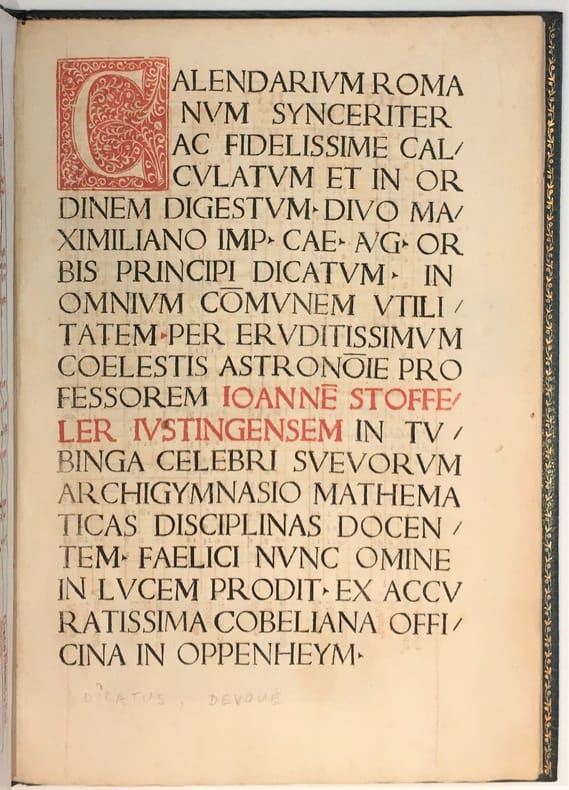 CALENDARIVM ROMA
NVM SYNCERITER
AC FIDELISSIME CAL/
CVLATVM ET IN OR
DINEM DIGESTVM· DIVO MA/
XIMILIANO IMP· CAE· AVG· OR
BIS PRINCIPI DICATVM· IN
OMNIVM CŌMVNEM VTILI/
TATEM·PER ERVDITISSIMVM
COELESTIS ASTRONŌIE PRO
FESSOREM IOANNĒ STOFFE/
LER IVSTINGENSEM IN TV/
BINGA CELEBRI SVEVORVM
ARCHIGYMNASIO MATHEMA
TICAS DISCIPLINAS DOCEN/
TEM· FAELICI NVNC OMINE
IN LVCEM PRODIT· EX ACCV
RATISSIMA COBELIANA OFFI/
CINA IN OPPENHEYM·
DEVOUE